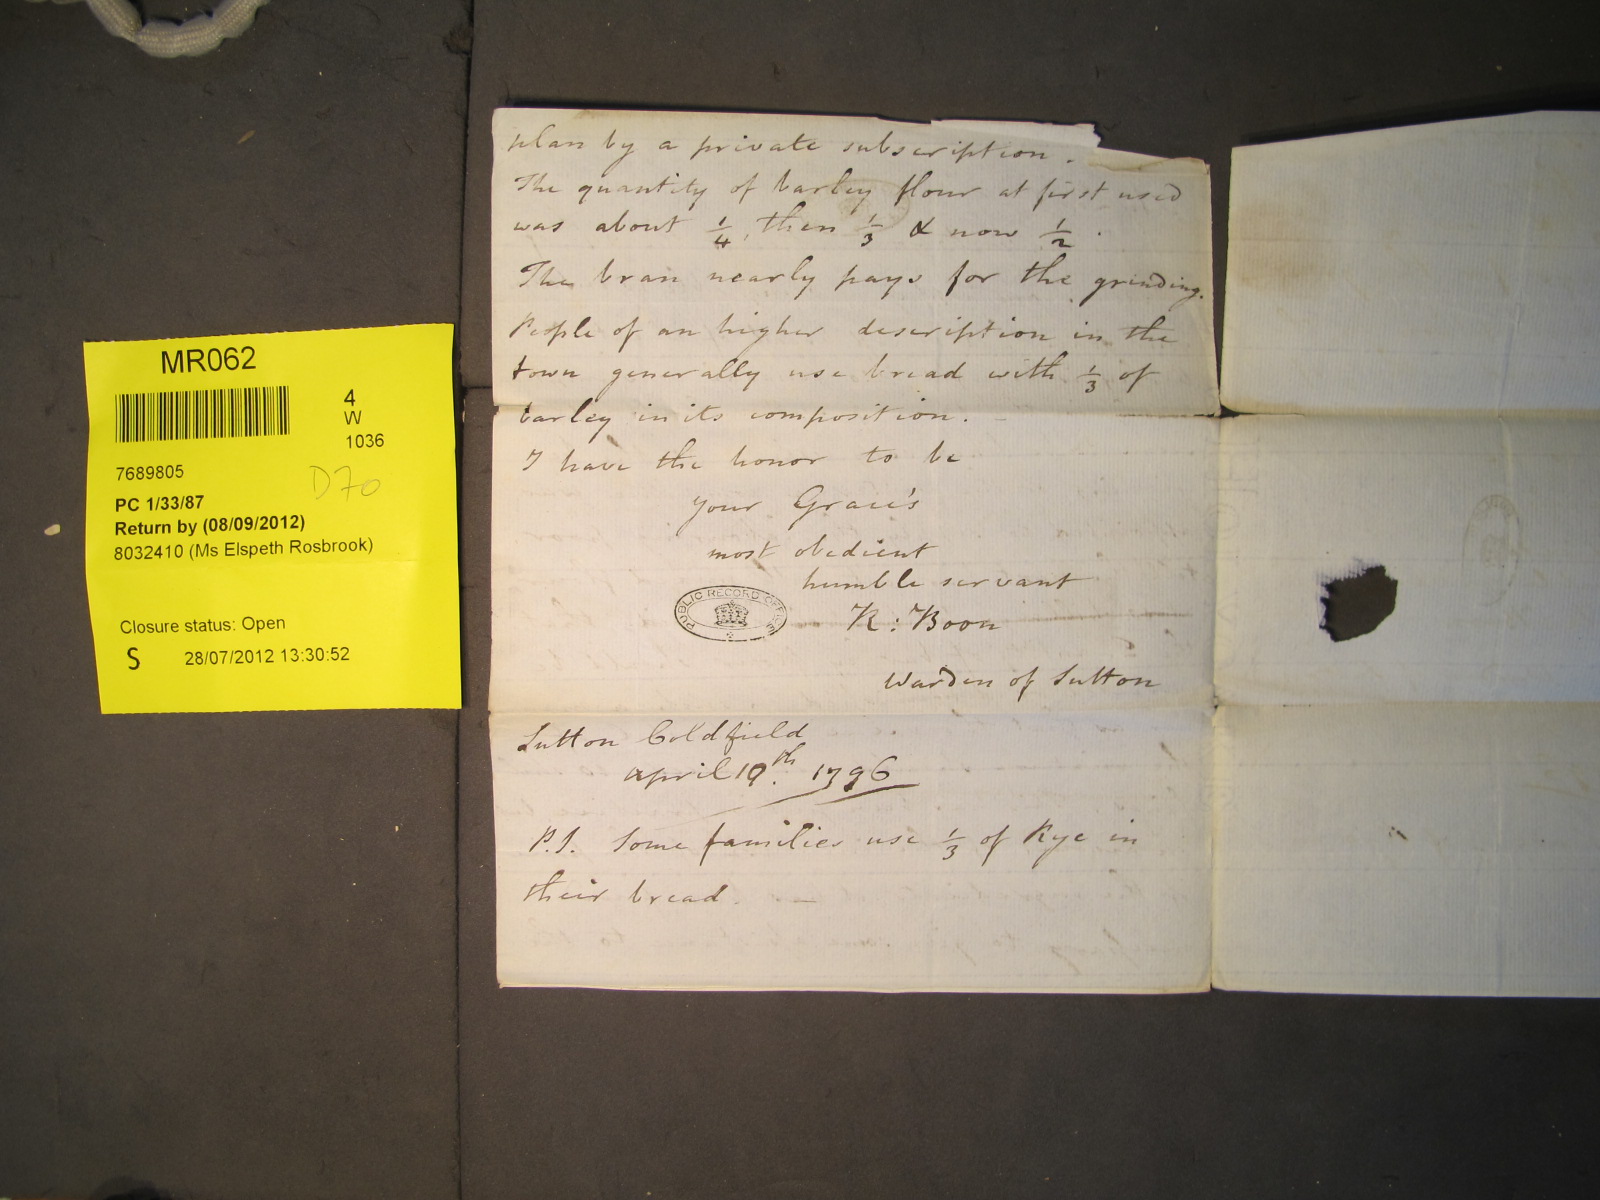 plan by a private subscription.
The quantity of barley flour at first used
was about 1/4, then 1/3 & now 1/2.
The bran nearly pays for the grinding.
People of an higher description in the
town generally use bread with 1/3 of
barley in its composition. —
I have the honor to be
your Grace's
most obedient
humble servant
R: Boon
Warden of Sutton
Sutton Coldfield
april 19th. 1796
P.S. Some families use 1/3 of Rye in
their bread. —
PUBLIC RECORD OFFICE
MR062
4
W
1036
7689805
D70
PC 1/33/87
Return by (08/09/2012)
8032410 (Ms Elspeth Rosbrook)
Closure status: Open
S 28/07/2012 13:30:52